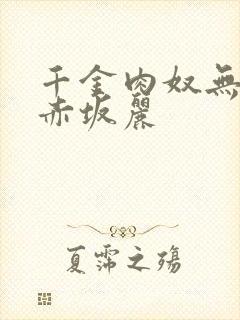 千金肉奴無
赤坂麗
夏霈之殤